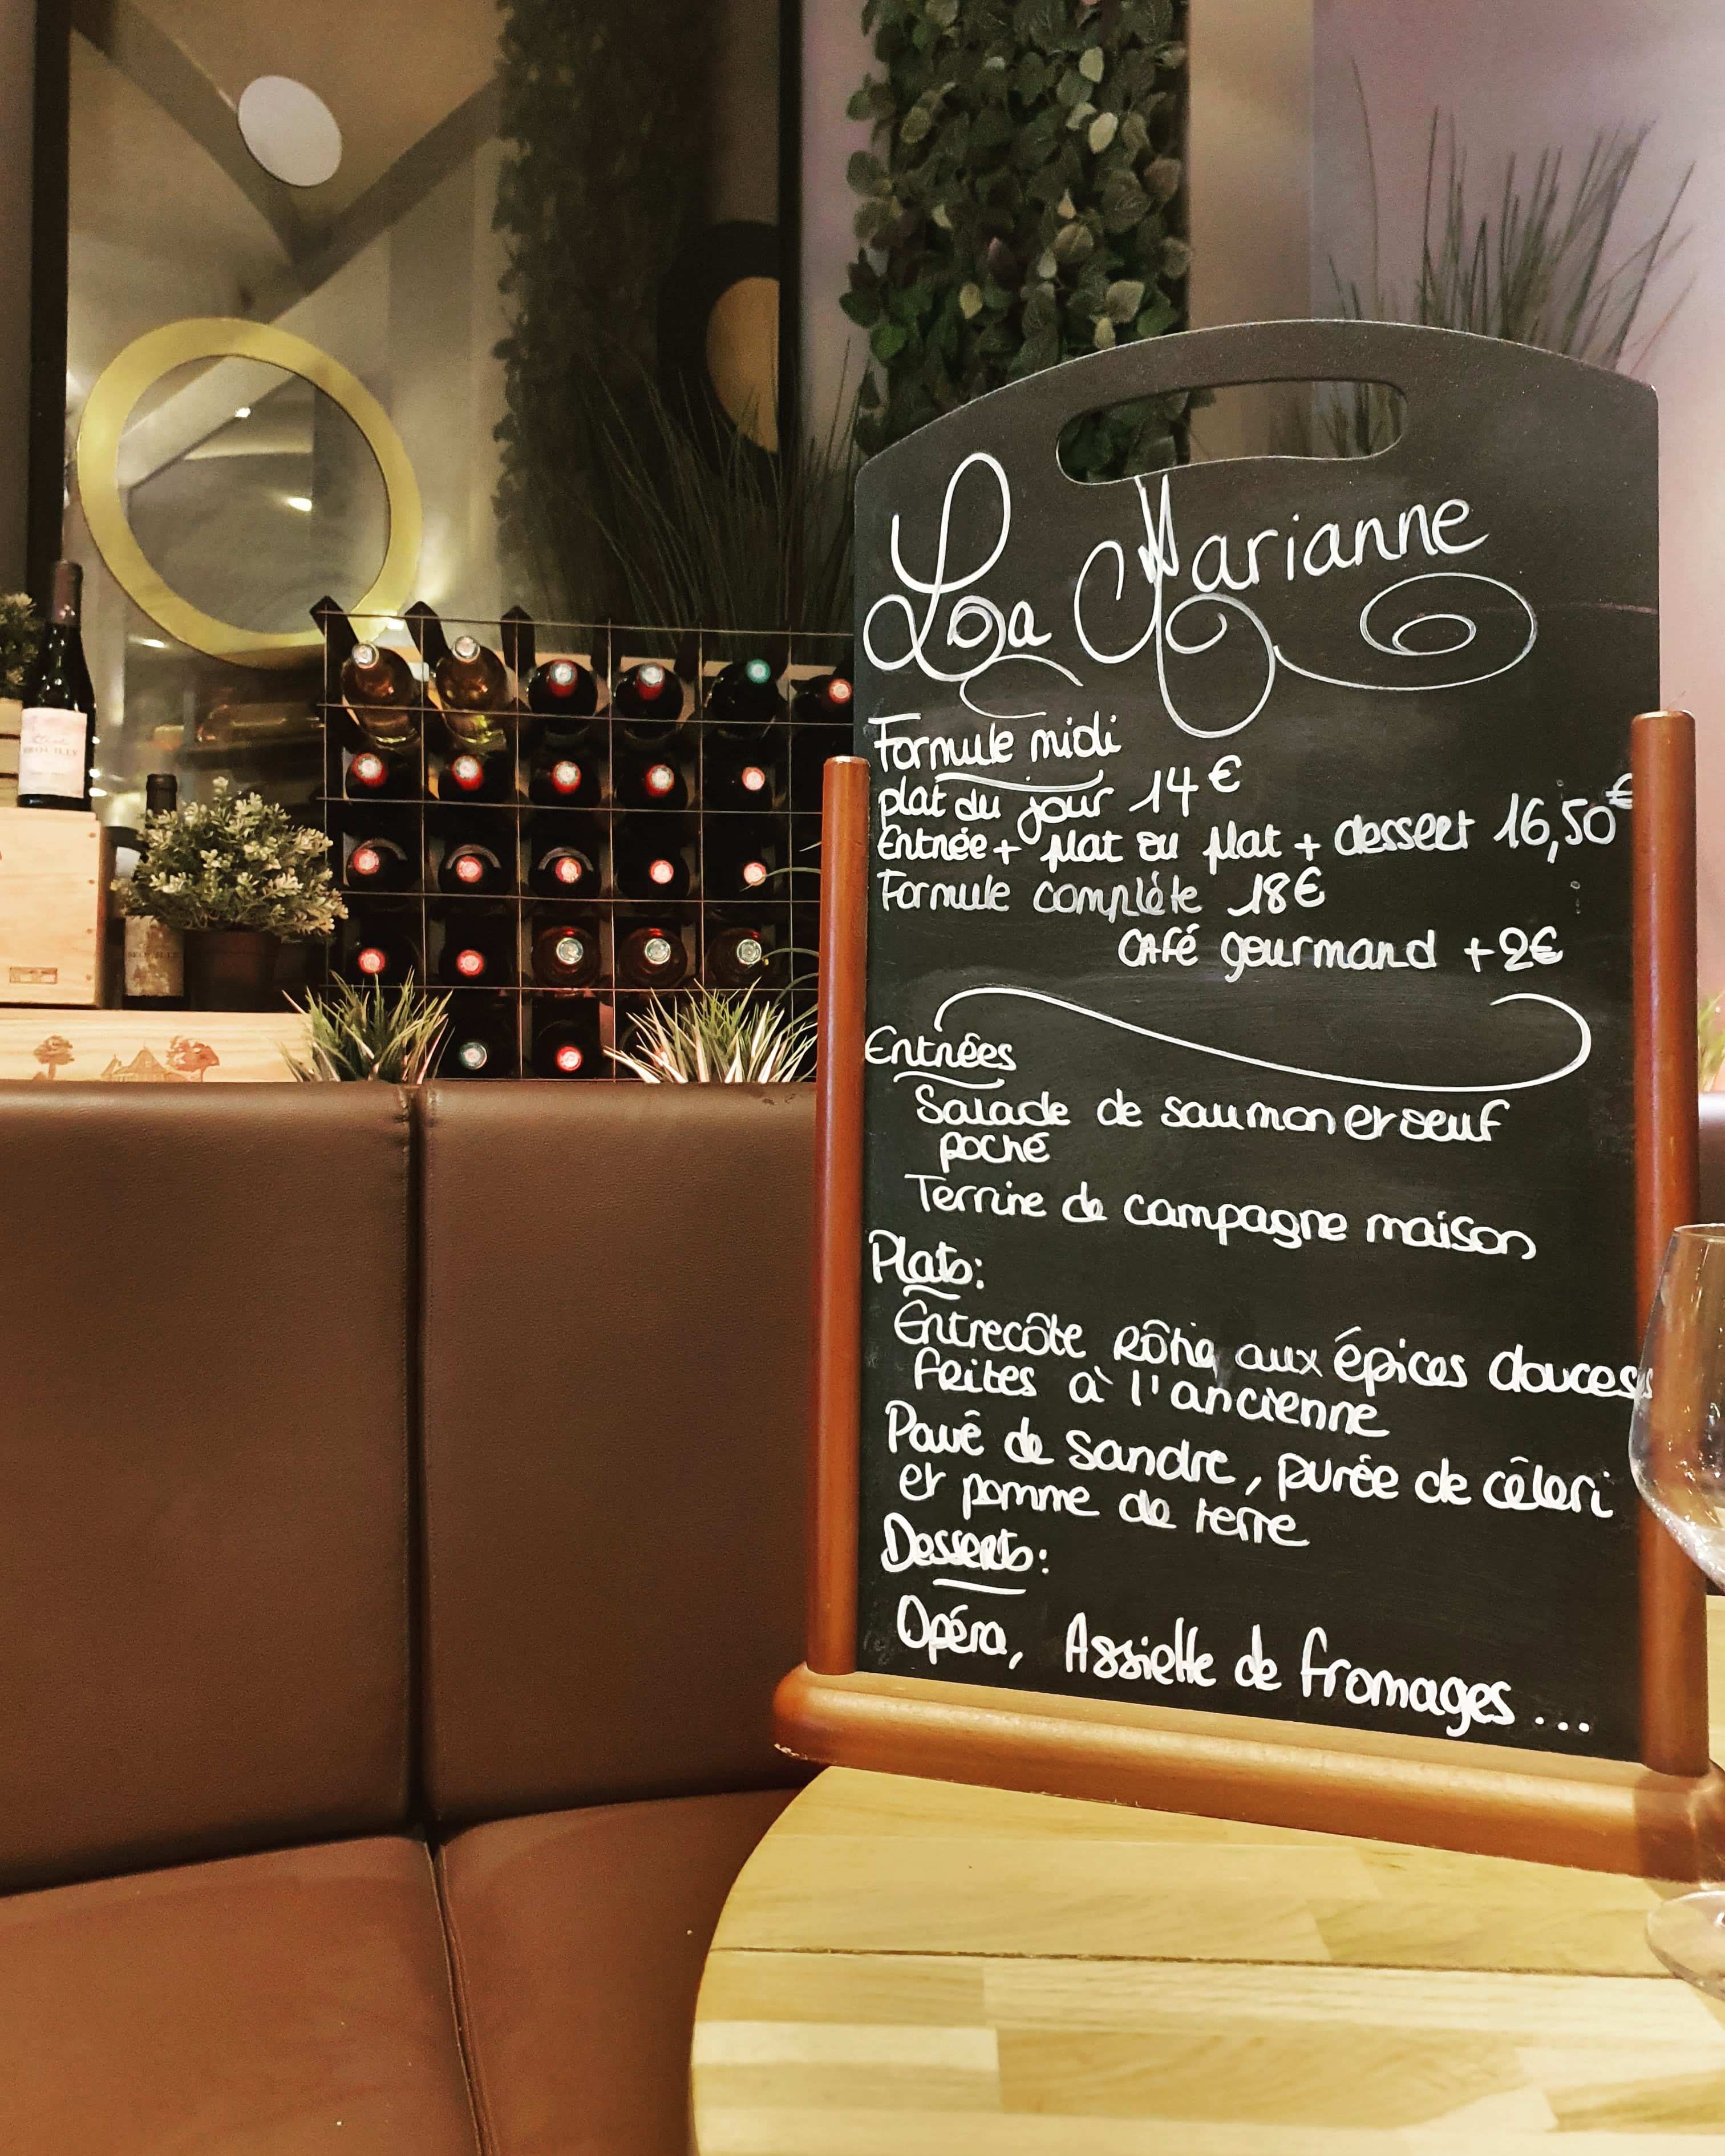 La Marianne
Formule midi
plat du jour 14€
Entrée + plat ou plat + dessert 16,50€
Formule complète 18€
CAFÉ gourmand +2€
Entrées
Salade de saumon et oeuf
poché
Terrine de campagne maison
Plats:
Entrecôte Rôtie aux épices douces,
frites à l'ancienne
Pavé de Sandre, purée de céleri
et pomme de terre
Desserts:
Opéra, Assiette de fromages...
BROUILLY